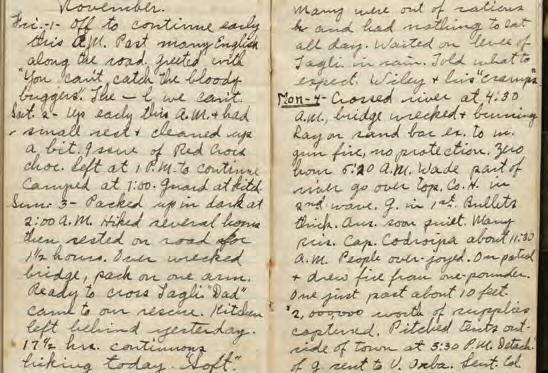 November.
Fri.-1- Off to continue early
this A.M. Past many English
along the road greeted with
"You can't catch the bloody
buggers". The — L we can't.
Sat. 2- Up early this A.M. + had
small rest + cleaned up
a bit. Issue of Red Cross
choc. left at 1 P.M. to continue
Camped at 1:00. Guard at kitch.
Sun. 3- Packed up in dark at
2:00 A.M. Hiked several hours
then rested on road for
1½ hours. Over wrecked
bridge, pack on one arm.
Ready to cross Tagli "Dad"
came to our rescue. Kitchen
left behind yesterday.
17½ hrs. continuous
hiking today. "Soft".
Many were out of rations
+ had nothing to eat
all day. Waited on levee of
Tagli in rain. Told what to
expect. Wiley + his "cramps"
Mon-4- Crossed river at 4:30
A.M., bridge wrecked + burning
Lay on sand bar ex. to m.
gun fire, no protection. Zero
hour 5:20 A.M. Wade part of
river go over top. Co. H. in
2nd wave. G. in 1st. Bullets
thick. Aus. soon quiet. Many
pris. Cap. Codroipa about 11:30
A.M. People over-joyed. On patrol
+ drew fire from one-pounder.
One just past about 10 feet.
$2,000000 worth of supplies
captured. Pitched tents out-
side of town at 5:30 P.M. Detach.
of G. sent to V. Orba. Lieut. Col.